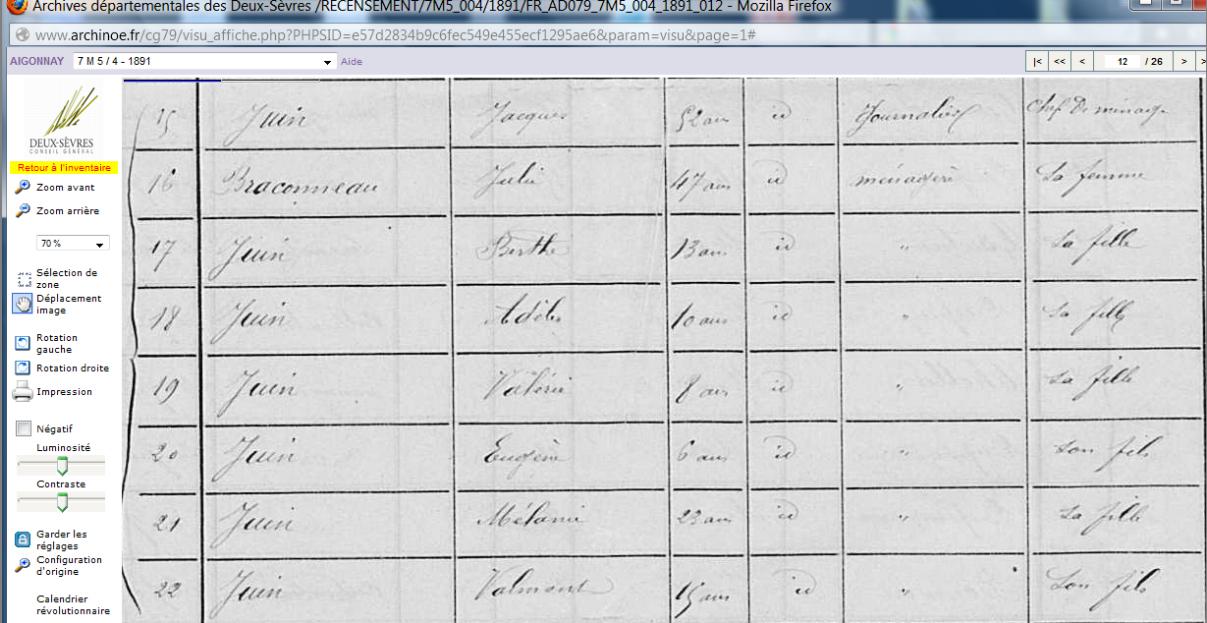 Archives départementales des Deux-Sèvres /RECENSEMENT/7M5_004/1891/FR_AD079_7M5_004_1891_012 - Mozilla Firefox
www.archinoe.fr/cg79/visu_affiche.php?PHPSID=e57d2834b9c6fec549e455ecf1295ae6&param=visu&page=1#
AIGONNAY 7 M 5 / 4 - 1891 Aide |< << < 12 / 26 > >
DEUX-SÈVRES
CONSEIL GÉNÉRAL
Retour à l'inventaire
Zoom avant
Zoom arrière
70 %
Sélection de
zone
Déplacement
image
Rotation
gauche
Rotation droite
Impression
Négatif
Luminosité
Contraste
Garder les
réglages
Configuration
d'origine
Calendrier
révolutionnaire
15 Juin Jacques 52 ans id Journalier Chef De ménage
16 Braconneau Julie 47 ans id ménagère Sa femme
17 Juin Berthe 13 ans id " Sa fille
18 Juin Adèle 10 ans id " Sa fille
19 Juin Valérie 8 ans id " Sa fille
20 Juin Eugène 6 ans id " Son fils
21 Juin Mélanie 22 ans id " Sa fille
22 Juin Valmont 15 ans id " Son fils